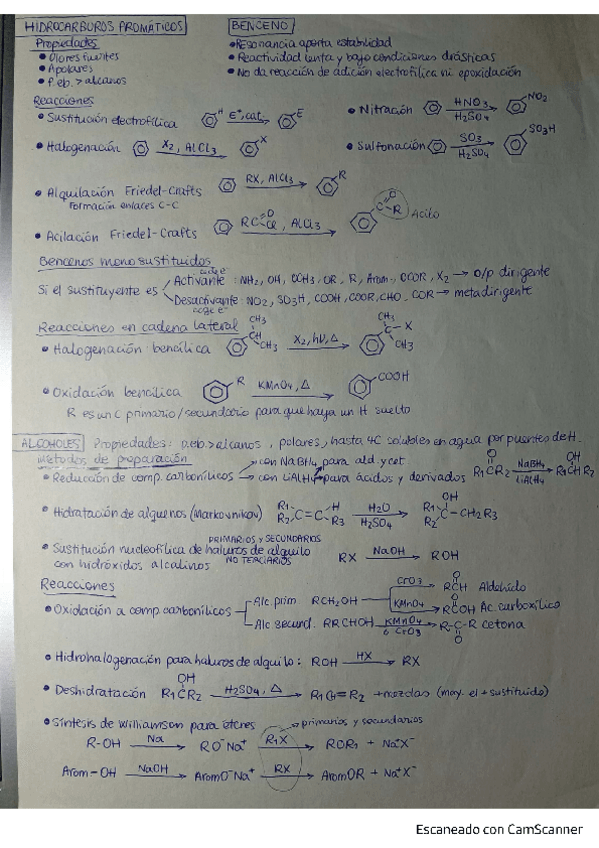 HIDROCARBUROS AROMÁTICOS
BENCENO
Propiedades
• Olores fuertes
• Apolares
• P. eb. > alcanos
• Resonancia aporta estabilidad
• Reactividad lenta y bajo condiciones drásticas
• No da reacción de adición electrofílica ni epoxidación
Reacciones
• Sustitución electrofílica H E⁺, cat. E
• Nitración HNO3 H2SO4 NO2
• Halogenación X2, AlCl3 X
• Sulfonación SO3 H2SO4 SO3H
• Alquilación Friedel-Crafts RX, AlCl3 R
Formación enlaces C-C
• Acilación Friedel-Crafts RC O Cl, AlCl3 C O R Acilo
Bencenos monosustituidos
Si el sustituyente es
Activante: NH2, OH, OCH3, OR, R, Arom., OCOR, X2 → o/p dirigente
Desactivante: NO2, SO3H, COOH, COOR, CHO, COR → metadirigente
coge e⁻
Reacciones en cadena lateral
• Halogenación bencílica CH3 CH CH3 X2, hν, Δ CH3 C-X CH3
• Oxidación bencílica R KMnO4, Δ COOH
R es un C primario/secundario para que haya un H suelto
ALCOHOLES Propiedades: p.eb. > alcanos, polares, hasta 4C solubles en agua por puentes de H.
Métodos de preparación
• Reducción de comp. carbonílicos
→ con NaBH4 para ald. y cet.
→ con LiAlH4 para ácidos y derivados
R1CR2 O NaBH4 LiAlH4 R1CHR2 OH
• Hidratación de alquenos (Markovnikov) R1 R2 C=C H R3 H2O H2SO4 R1 R2 OH C-CH2R3
PRIMARIOS Y SECUNDARIOS
• Sustitución nucleofílica de haluros de alquilo
con hidróxidos alcalinos NO TERCIARIOS
RX NaOH → ROH
Reacciones
• Oxidación a comp. carbonílicos
Alc. prim RCH2OH
CrO3 → RCH O Aldehído
KMnO4 → RCOH O Ac. carboxílico
Alc secund. RRCHOH KMnO4 ó CrO3 → R-C-R O cetona
• Hidrohalogenación para haluros de alquilo: ROH HX → RX
• Deshidratación R1CR2 OH H2SO4, Δ → R1CH=R2 + mezclas (may. el + sustituido)
• Síntesis de Williamson para éteres → primarios y secundarios
R-OH Na → RO⁻Na⁺ R1X → ROR1 + Na⁺X⁻
Arom-OH NaOH → AromO⁻Na⁺ RX → AromOR + Na⁺X⁻
Escaneado con CamScanner